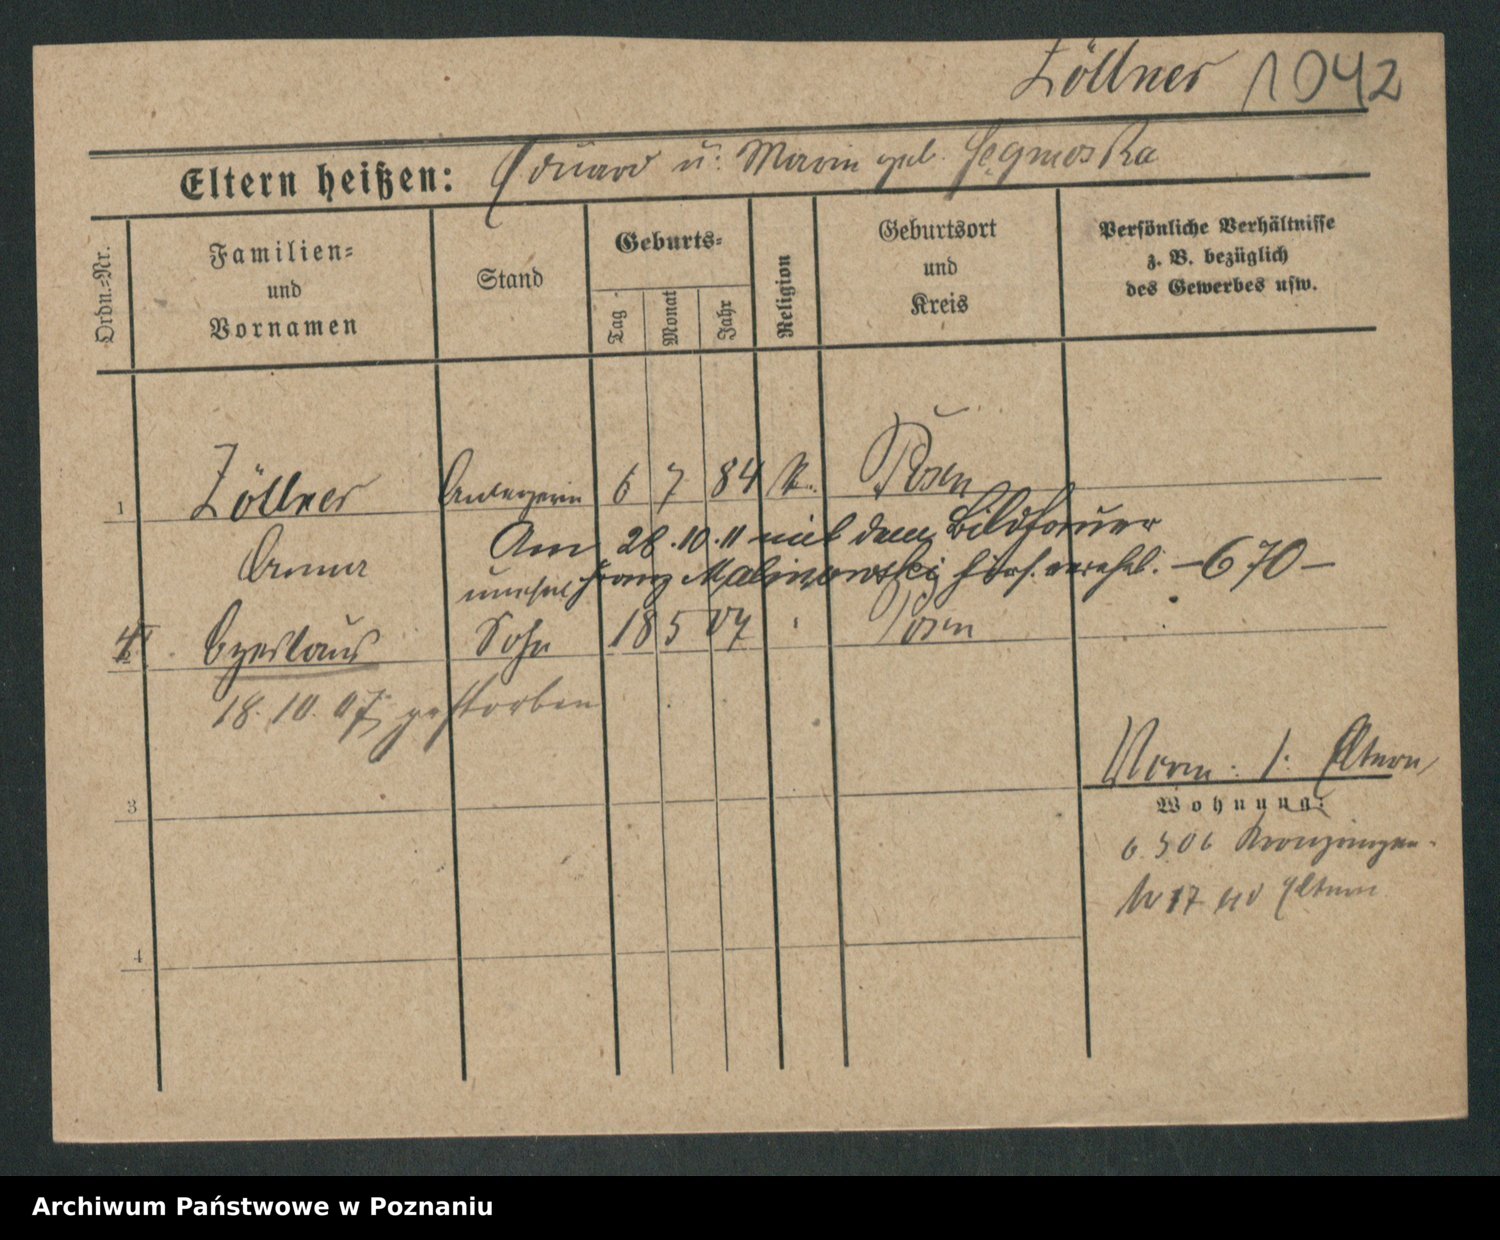 Zöllner 1042
Eltern heißen: Eduard u. Marie geb.
Ordn.-Nr.
Familien-
und
Vornamen
Stand
Geburts-
Tag
Monat
Jahr
Religion
Geburtsort
und
Kreis
Persönliche Verhältnisse
z. B. bezüglich
des Gewerbes usw.
1 Zöllner Anlegerin 6 7 84 k. Posen
Anna
Am 28.10.11 mit dem Bildhauer
Franz Malinowski hier verehel. - 670 -
unehel
2 Czeslaus Sohn 18 5 07 Posen
18.10.07 gestorben
3
4
Norm. s. Eltern
Wohnung:
6 5 06
17 Eltern
Archiwum Państwowe w Poznaniu